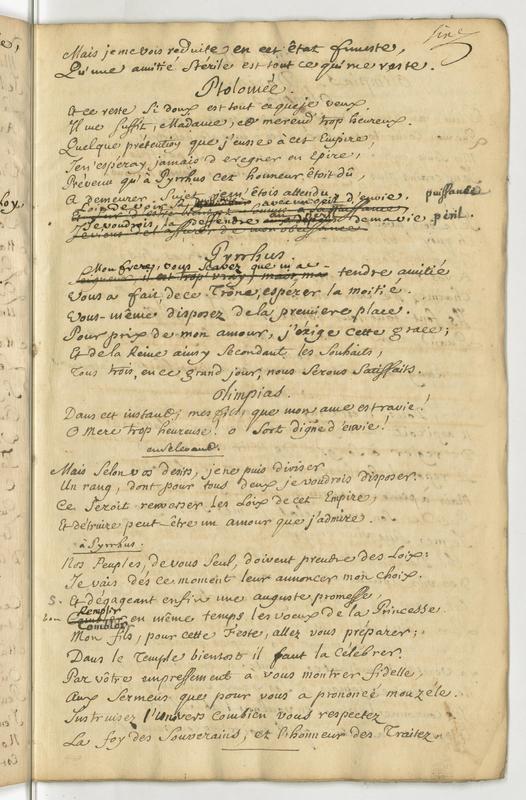 Fin
Mais je me vois reduite en cet état funeste,
Qu'une amitié stérile est tout ce qui me reste.
Ptolomée.
Et ce reste si doux est tout ce que je veux.
Il me suffit, Madame, et me rend trop heureux.
Quelque prétention que j'eusse à cet Empire,
J'en espéray jamais de regner en Epire;
Prevenu qu'à Pyrrhus cet honneur étoit dû,
A demeurer Sujet j'en étois attendu
Loin de voir avec un œil d'envie. puissance
Je voudrois la deffendre au péril de ma vie. péril.
Pyrrhus.
Mon frere, vous sçavez que ma tendre amitié
Vous a fait de ce Trône espérer la moitié.
Vous-même disposez de la premiere place.
Pour prix de mon amour, j'exige cette grace;
Et de la Reine ainsy secondant les souhaits,
Tous trois, en ce grand jour, nous serons satisfaits.
Olimpias.
Dans cet instant, mes fils, que mon ame est ravie!
O Mere trop heureuse! o sort digne d'envie!
en se levant.
Mais selon vos desirs, je ne puis diviser
Un rang, dont pour tous deux je voudrois disposer.
Ce seroit renverser les Loix de cet Empire,
Et détruire peut-être un amour que j'admire.
à Pyrrhus.
Nos Peuples, de vous seul, doivent prendre des Loix:
Je vais dès ce moment leur annoncer mon choix.
S. Et dégageant enfin une auguste promesse,
bon Remplir
Combler en même temps les vœux de la Princesse.
Combler
Mon fils, pour cette Feste, allez vous préparer;
Dans le Temple bientost il faut la célébrer.
Par vôtre empressement à vous montrer fidelle,
Aux Sermens que pour vous a prononcé mon zéle.
Instruisez l'Univers combien vous respectez
La foy des Souverains, et l'honneur des Traitez.